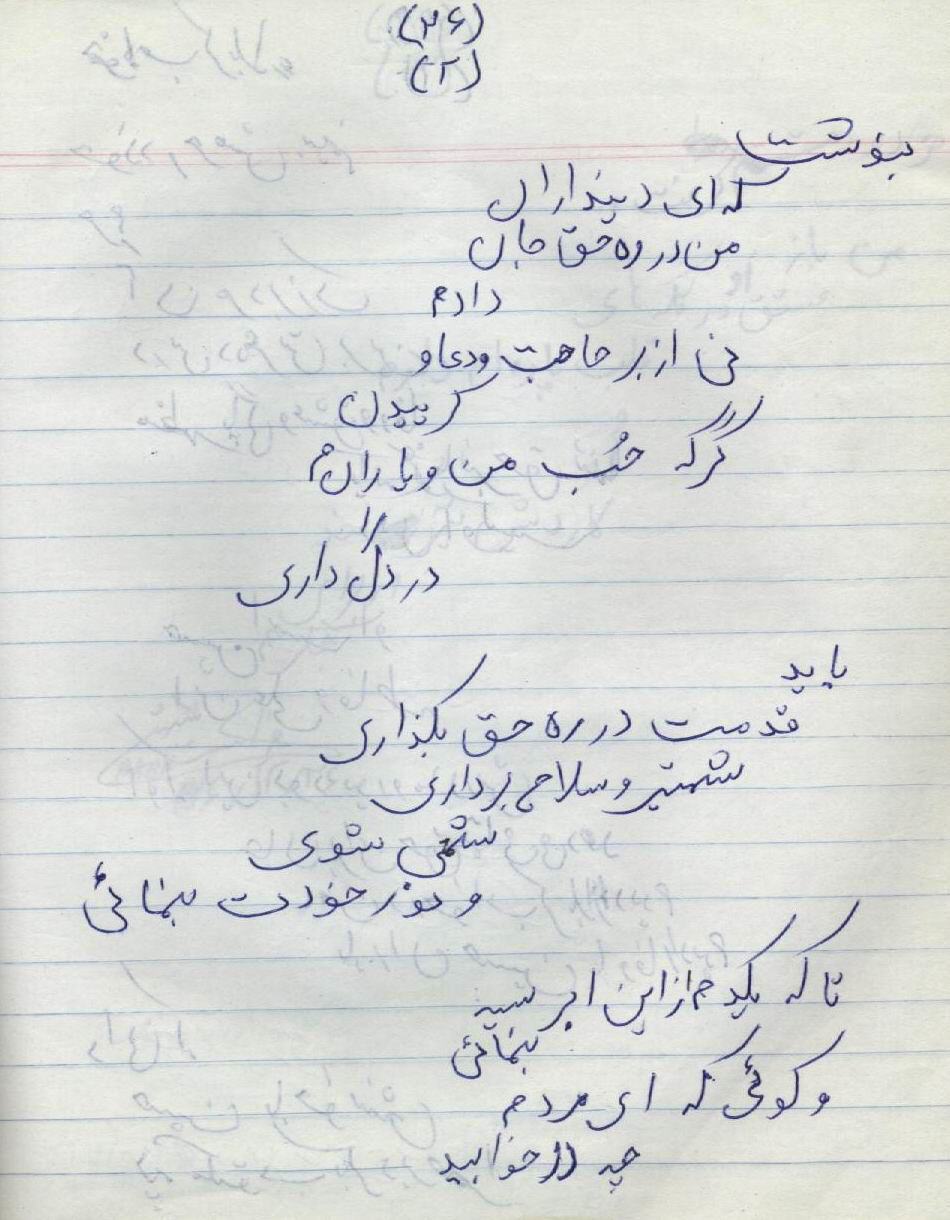 (۲۶)
(۲)
بنوشت
که ای دینداران
من در ره حق جان
دادم
نی از بر حاجت و دعا و
گرییدن
گر که حُب من و یارانم
را
در دل داری
باید
قدمت در ره حق بگذاری
شمشیر و سلاح برداری
شمعی شوی
و نور خودت بنمائی
تا که یکدم از این ابر سیه
بنمائی
و گوئی که ای مردم
چه را خوابید